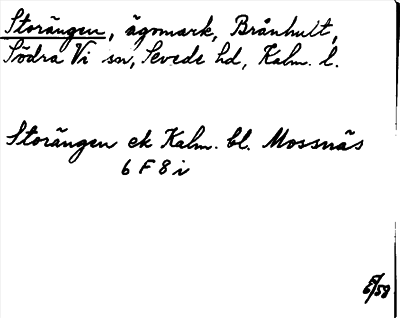 Storängen, ägomark, Brånhult,
Södra Vi sn, Sevede hd, Kalm. l.
Storängen ek Kalm. bl. Mossnäs
6 F 8 i